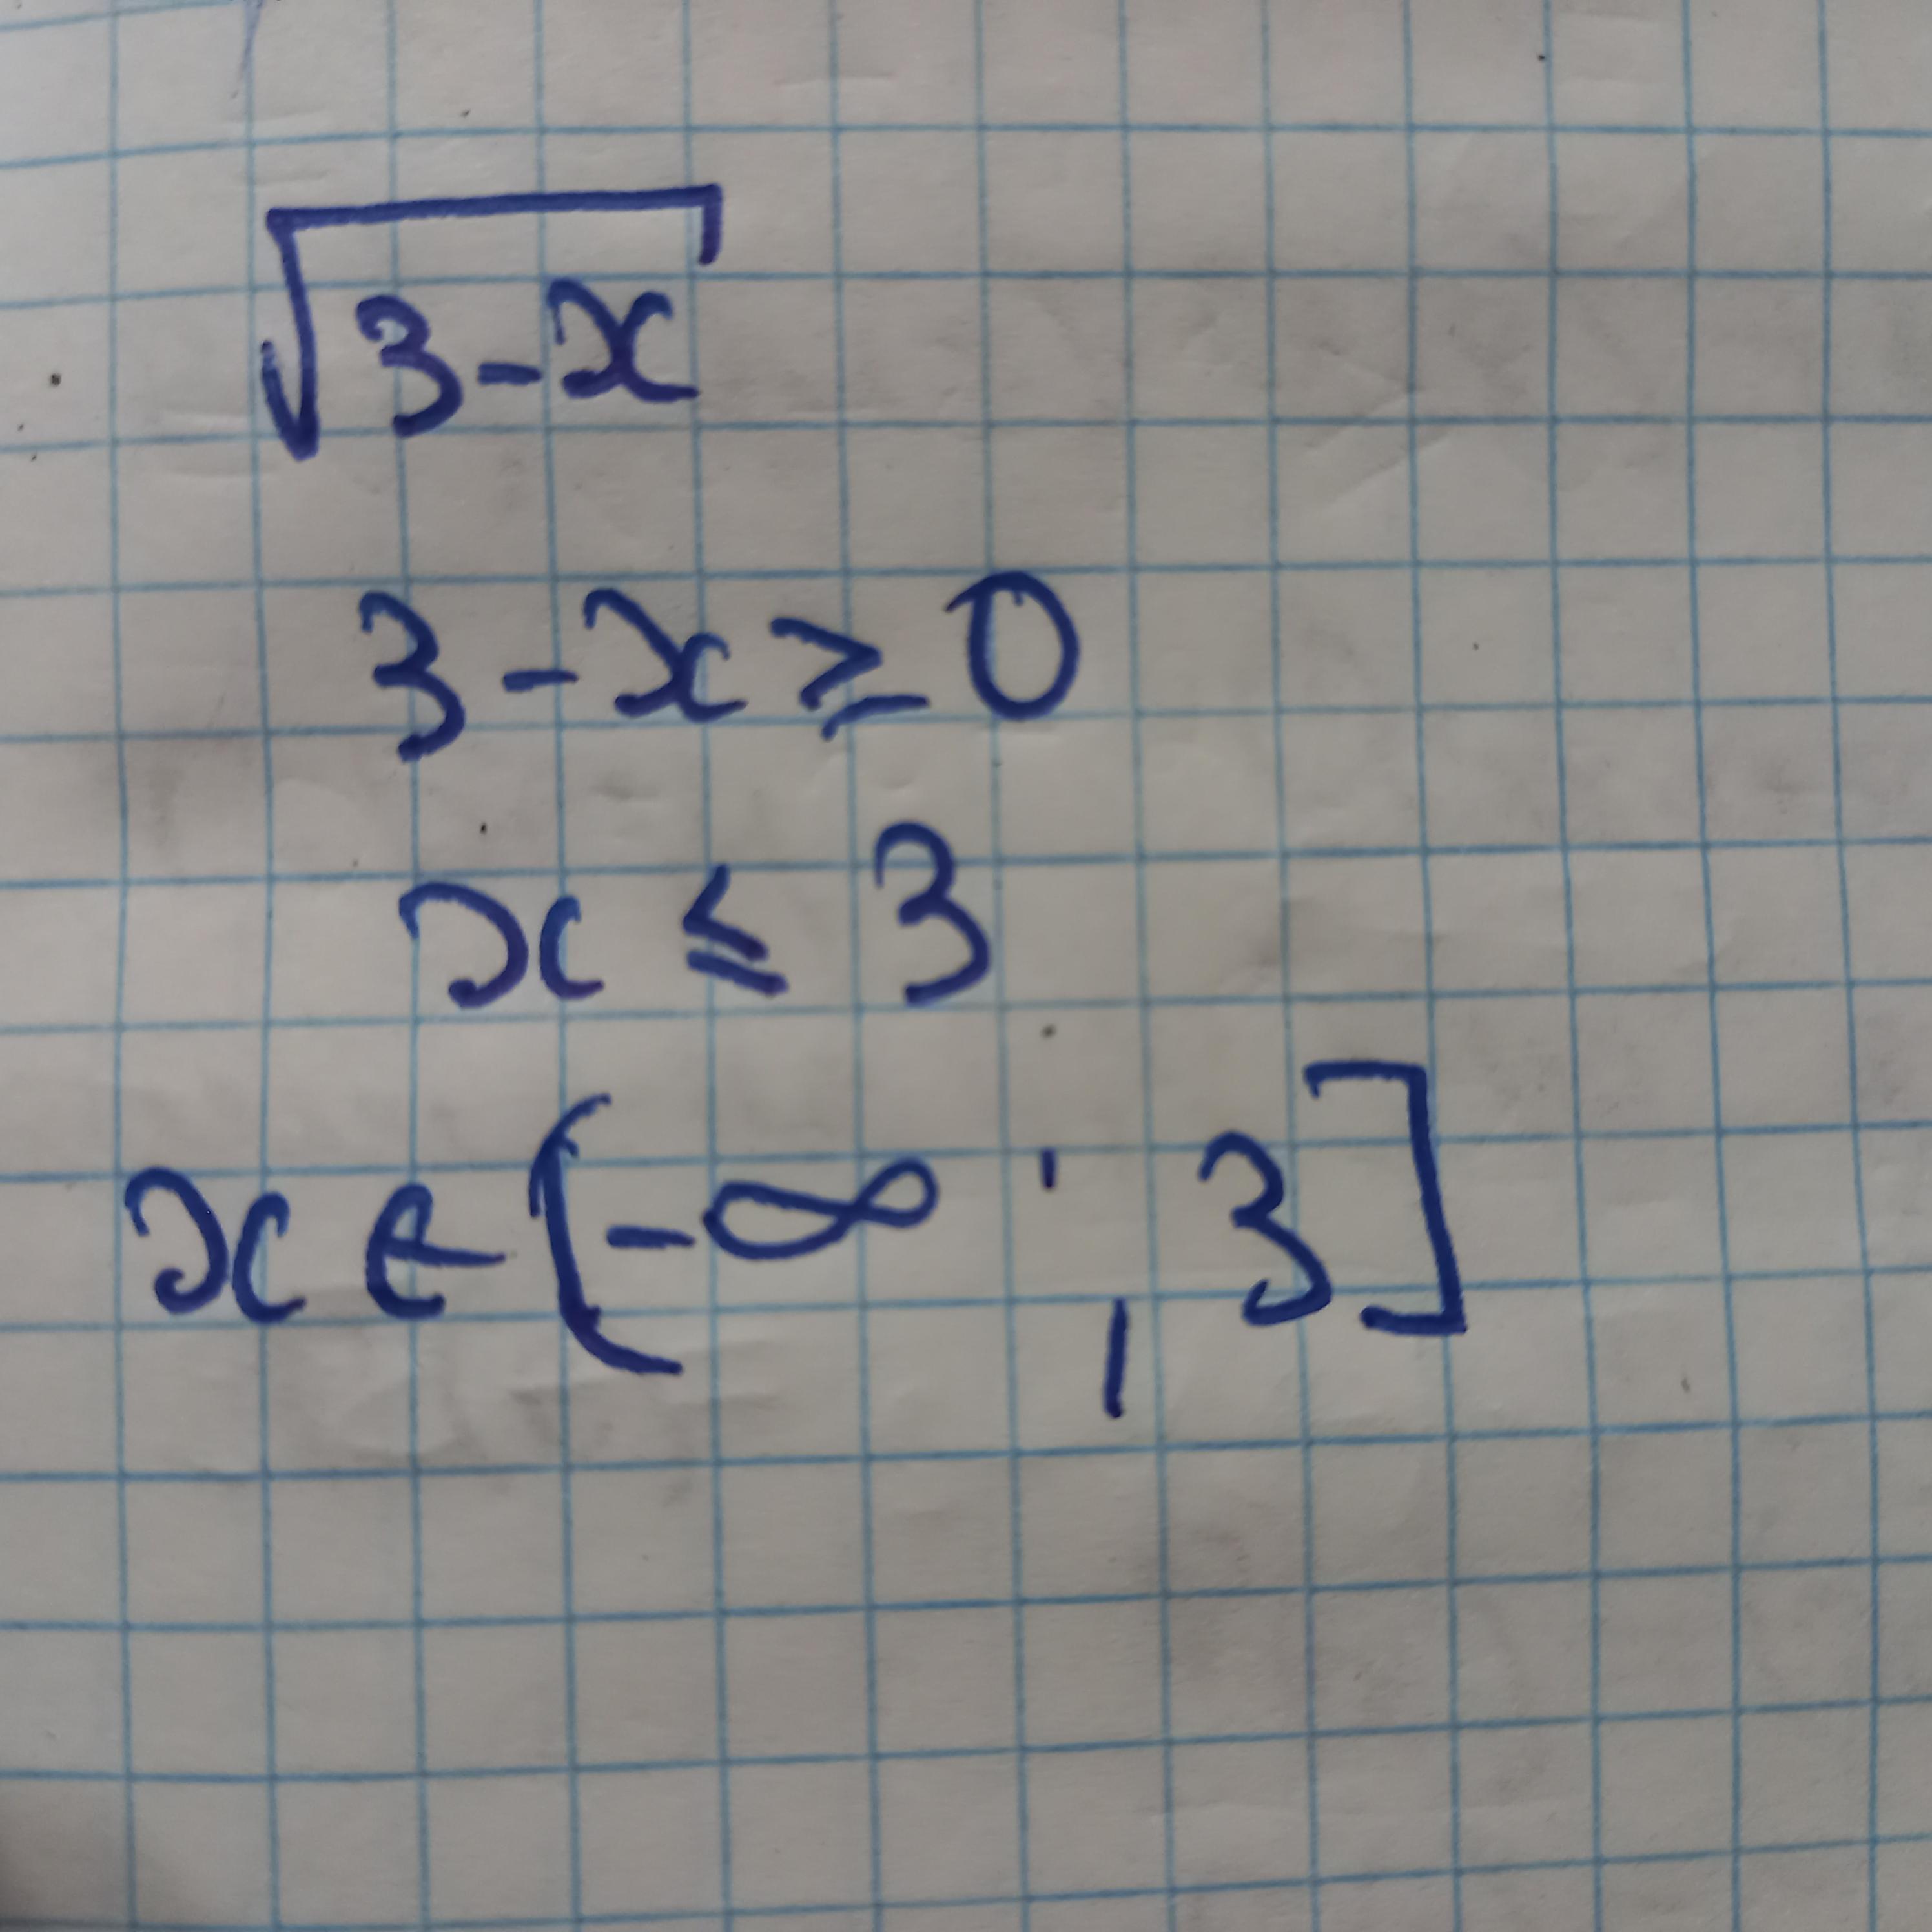 √3-x
3-x≥0
x≤3
x∈(-∞;3]